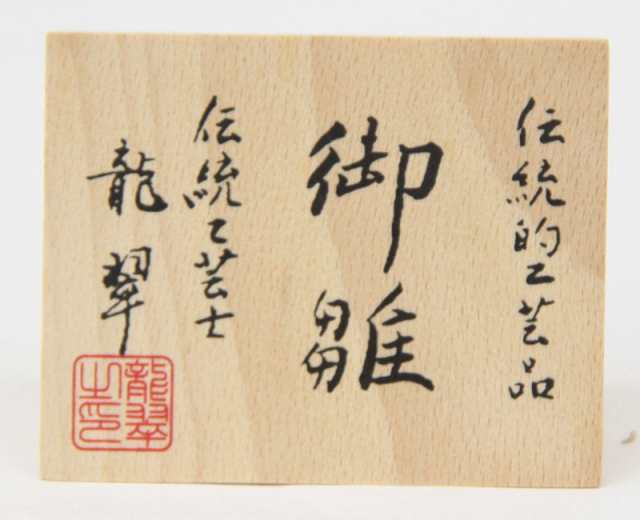 伝統的工芸品
御雛
伝統工芸士
龍翠
龍翠之印